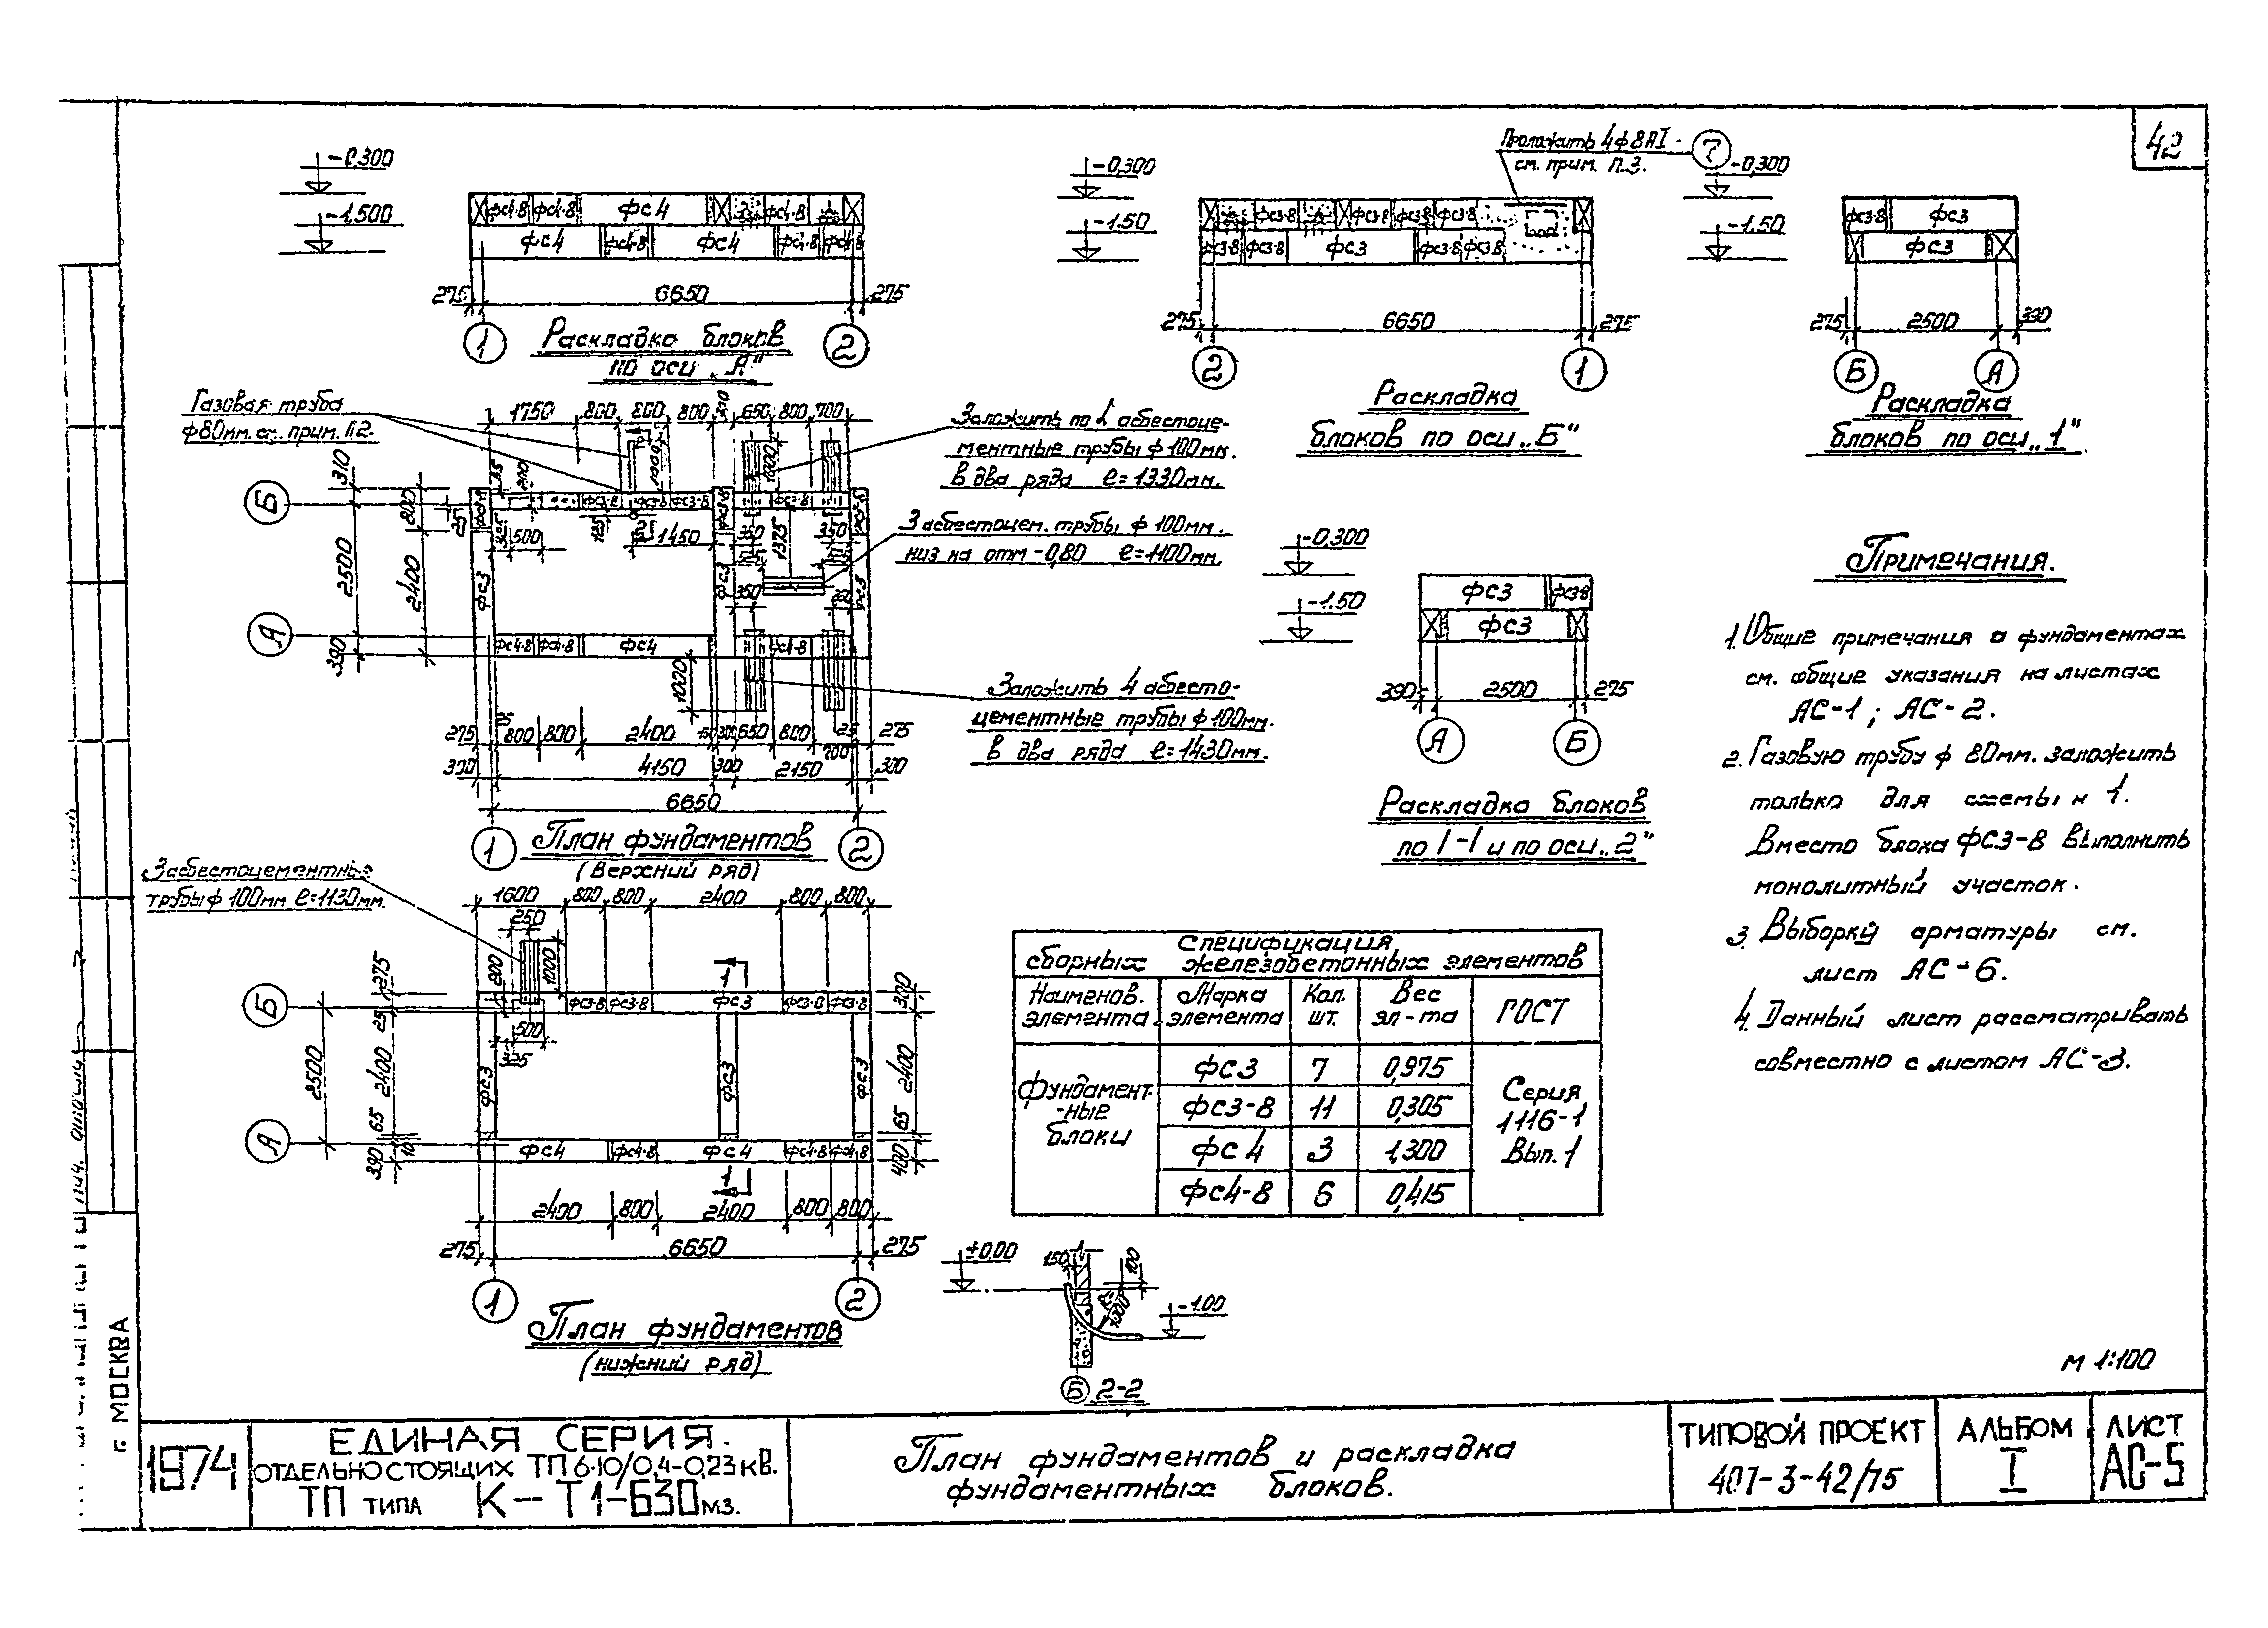 42
-0,300
-1.500
ФС4-8 ФС4-8 ФС4 ФС4-8
ФС4 ФС4-8 ФС4 ФС4-8 ФС4-8
275 6650 275
1 2
Раскладка блоков
по оси „А"
Проложить 4ф8АI
см. прим. п.3.
7
-0,300
-1.50
ФС3-8 ФС3-8 ФС3-8 ФС3-8
ФС3-8 ФС3-8 ФС3 ФС3-8 ФС3-8
275 6650 275
2 1
Раскладка
блоков по оси „Б"
-0,300
-1.50
ФС3-8 ФС3
ФС3
275 2500 390
Б А
Раскладка
блоков по оси „1"
Газовая труба
ф80мм. см. прим. п2.
1750 800 800 800 650 800 700
Заложить по 2 асбестоце-
ментные трубы ф 100мм.
в два ряда ℓ=1330мм.
3 асбестоцем. трубы ф 100мм.
низ на отм -0,80 ℓ=1100мм.
Заложить 4 асбесто-
цементные трубы ф 100мм.
в два ряда ℓ=1430мм.
310 2500 390
800 25 2400
Б
А
ФС3-8 ФС3-8 ФС3-8
500 125 1450 350 1375 350
1000 1000
ФС3 ФС3 ФС3
350
ФС4-8 ФС4-8 ФС4 ФС4-8
1000
25
275 800 800 2400 50 300 650 800 25 275
700
300 4150 300 2150 300
6650
1 2
План фундаментов
(Верхний ряд)
-0,300
-1.50
ФС3 ФС3-8
ФС3
390 2500 275
А Б
Раскладка блоков
по I-I и по оси „2"
3 асбестоцементные
трубы ф 100мм ℓ=1130мм.
1600 800 800 2400 800 800
250
200 1000
275 25 2400 65 10 390
2500
Б
А
1
ФС3-8 ФС3-8 ФС3 ФС3-8 ФС3-8
500
325
ФС3 ФС3 ФС3
300 2400 65 400
ФС4 ФС4-8 ФС4 ФС4-8 ФС4-8
1
2400 800 2400 800 800
275 6650 275
1 2
План фундаментов
(нижний ряд)
Спецификация
сборных железобетонных элементов
Наименов. элемента Марка элемента Кол. шт. Вес эл-та ГОСТ
Фундамент-
-ные
блоки
ФС3 7 0,975
ФС3-8 11 0,305
ФС4 3 1,300
ФС4-8 6 0,415
Серия
1116-1
Вып. 1
±0,00
150 100
R=1000
-1.00
Б 2-2
Примечания.
1. Общие примечания о фундаментах
см. общие указания на листах
АС-1; АС-2.
2. Газовую трубу ф 80мм. заложить
только для схемы н 1.
Вместо блока ФС3-8 выполнить
монолитный участок.
3. Выборку арматуры см.
лист АС-6.
4. Данный лист рассматривать
совместно с листом АС-3.
м 1:100
г. МОСКВА
1974
ЕДИНАЯ СЕРИЯ.
ОТДЕЛЬНОСТОЯЩИХ ТП 6-10/0,4-0,23 кВ.
ТП ТИПА К-Т1-630 м3.
План фундаментов и раскладка
фундаментных блоков.
ТИПОВОЙ ПРОЕКТ
407-3-42/75
АЛЬБОМ
I
ЛИСТ
АС-5